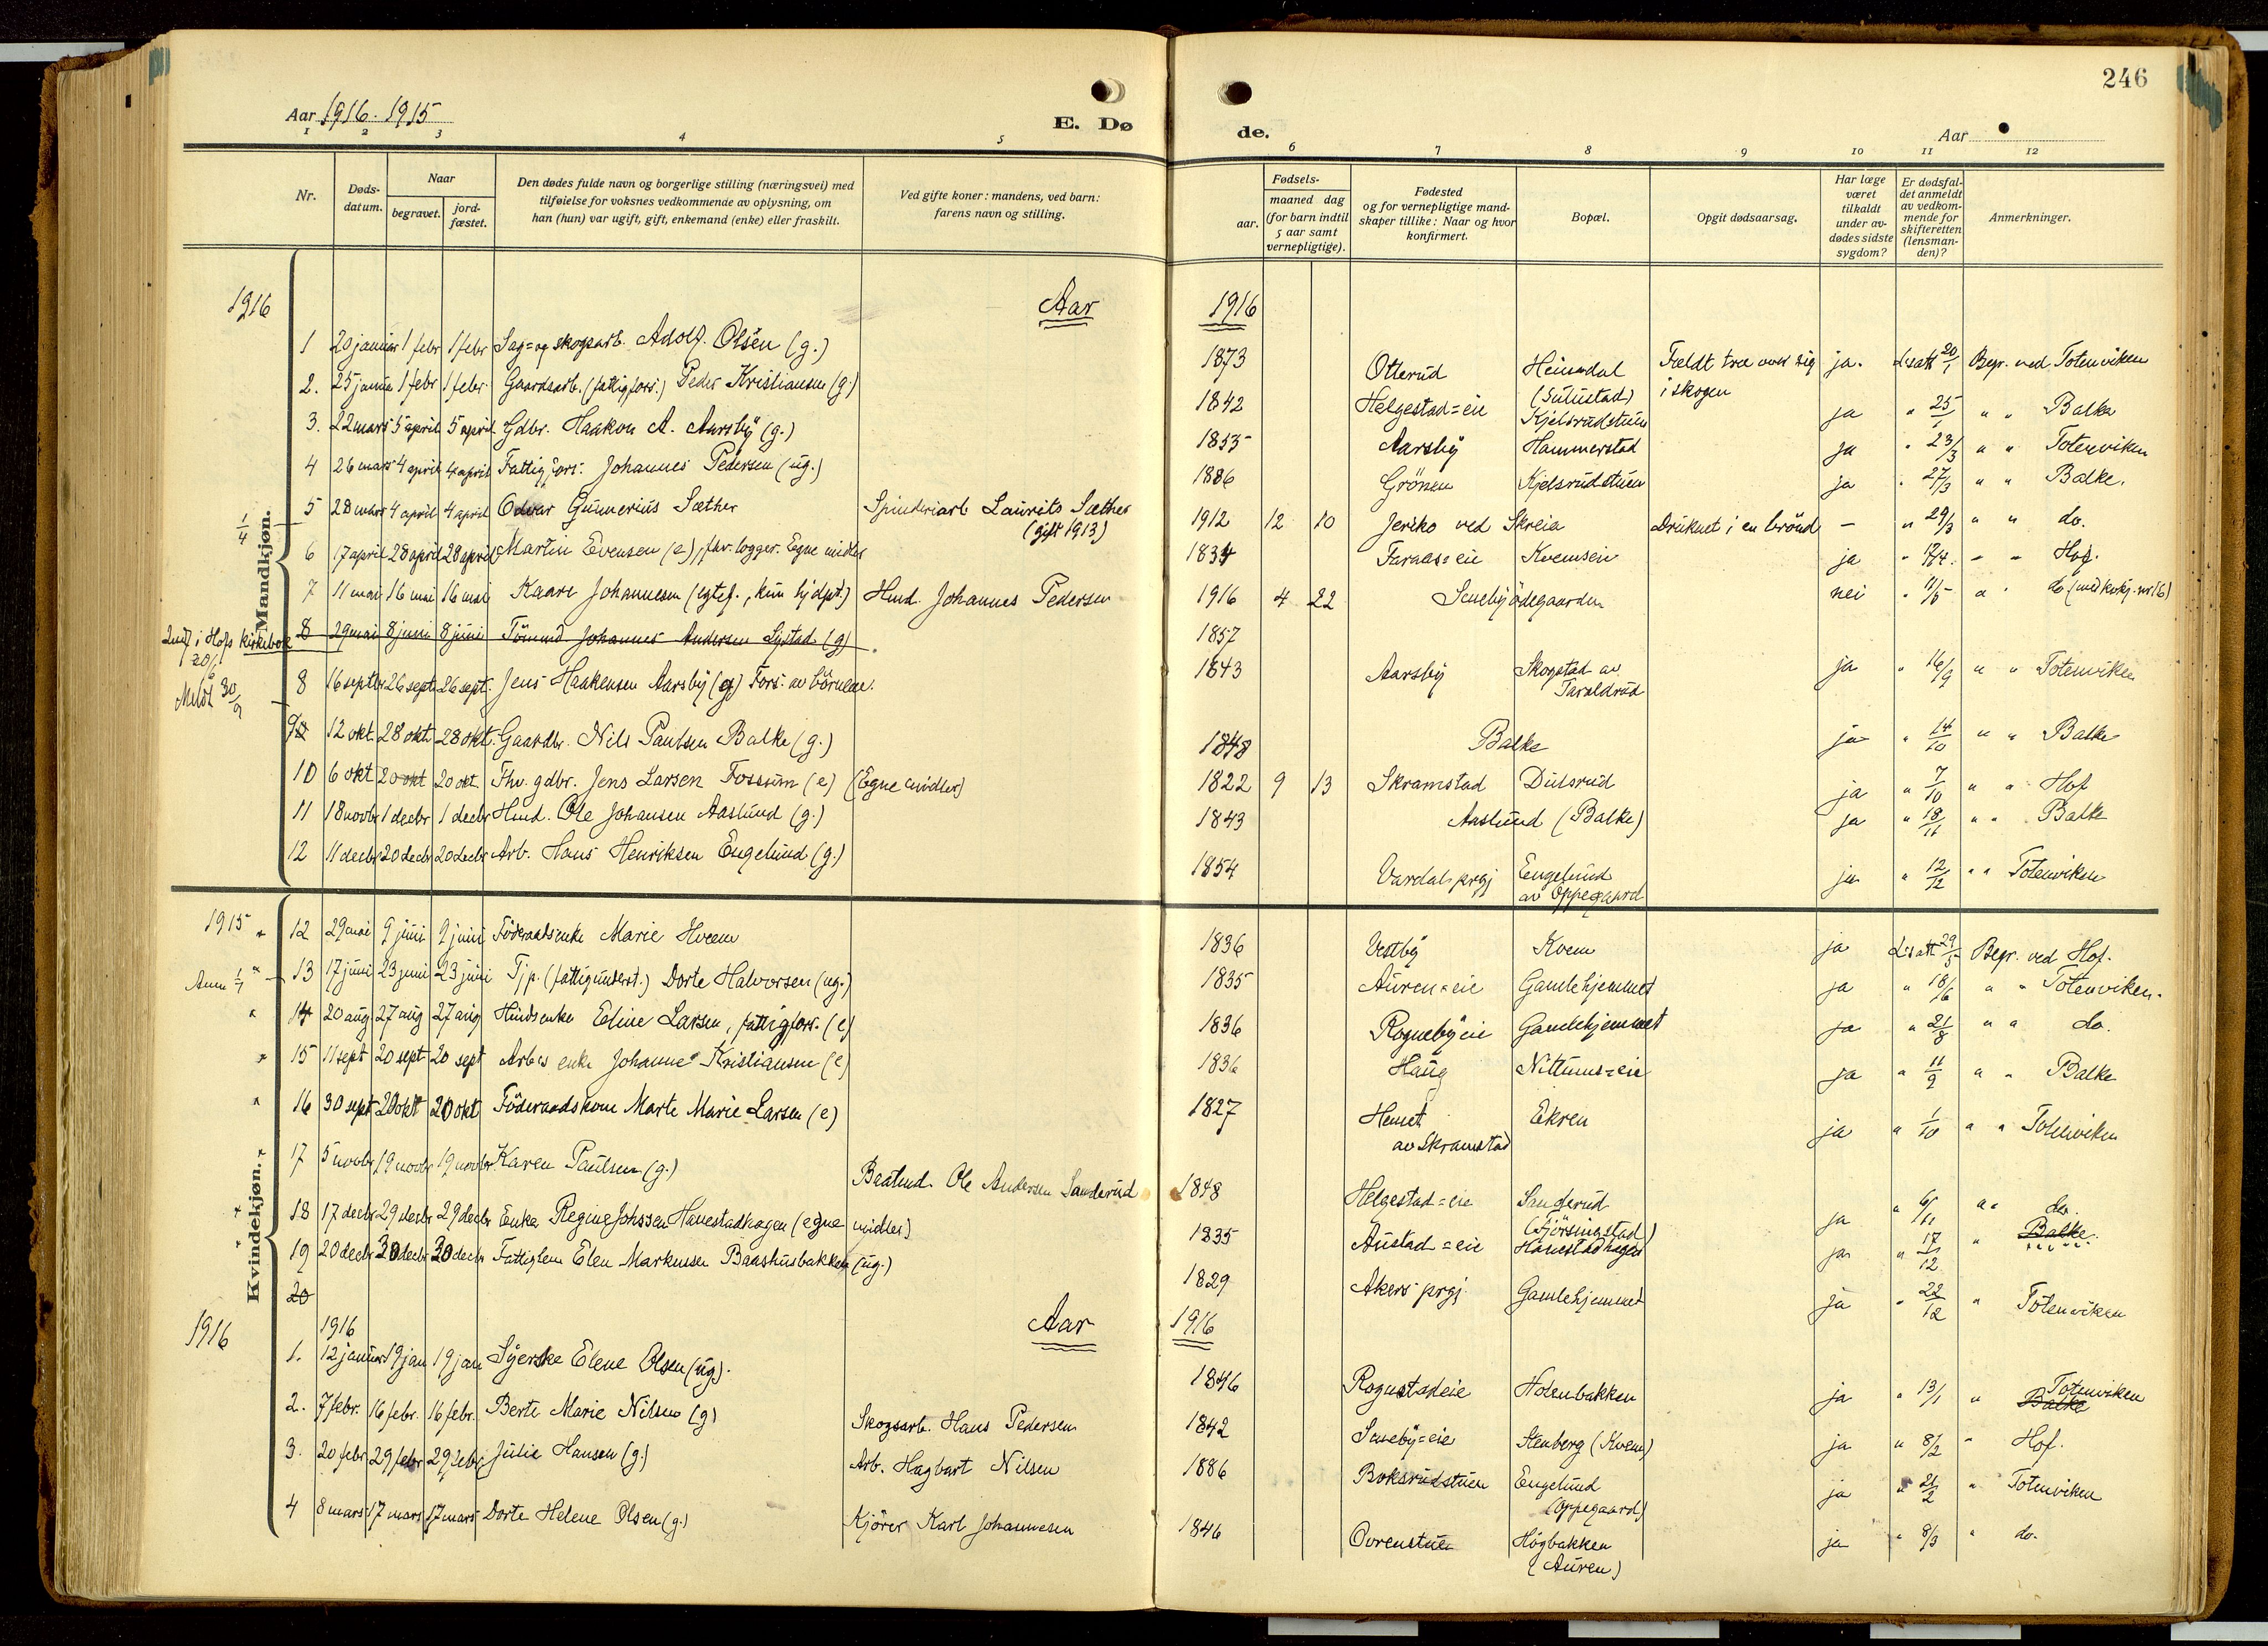 246
Aar 1916. 1915
E. Dø de.
Aar
1 2 3 4 5 6 7 8 9 10 11 12
Nr.
Døds-
datum.
Naar
begravet.
jord-
fæstet.
Den dødes fulde navn og borgerlige stilling (næringsvei) med
tilføielse for voksnes vedkommende av oplysning, om
han (hun) var ugift, gift, enkemand (enke) eller fraskilt.
Ved gifte koner: mandens, ved barn:
farens navn og stilling.
Fødsels-
aar.
maaned dag
(for barn indtil
5 aar samt
vernepligtige).
Fødested
og for vernepligtige mand-
skaper tillike: Naar og hvor
konfirmert.
Bopæl.
Opgit dødsaarsag.
Har læge
været
tilkaldt
under av-
dødes sidste
sygdom?
Er dødsfal-
det anmeldt
av vedkom-
mende for
skifteretten
(lensman-
den)?
Anmerkninger.
Mandkjøn.
1916 Aar 1916
1 20 januar 1 febr 1 febr Sag= og skogsarb. Adolf. Olsen (g.) 1873 Otterud Heimdal Fældt træ over sig ja. Lsatt 20/1 Begr. ved Totenviken
(Sulustad) i skogen
2. 25 janua 1 febr 1 febr Gaardsarb. (fattigfors.) Peder Kristiansen (g.) 1842 Helgestad=eie Kjelsrudstuen ja " 25/1 " " Balke
3. 22 mars 5 april 5 april Gdbr. Haakon A. Aarsby (g.) 1853 Aarsby Hammerstad ja " 23/3 " " Totenviken
4 26 mars 4 april 4 april Fattigfors. Johannes Pedersen (ug.) 1886 Grönen Kjelsrudstuen ja " 27/3 " " Balke.
1/4
5 28 mars 4 april 4 april Odvar Gunnerius Sæther Spinderiarb Laurits Sæther 1912 12 10 Jeriko ved Skreia Druknet i en brönd – " 29/3 " " do.
(gift 1913)
6 17 april 28 april 28 april Martin Evensen (e), fhv. logger. Egne midler 1834 Faraas=eie Kvemseie ja " " " Hof.
7 11 mai 16 mai 16 mai Kaare Johannesen (egtef., kun hjdpt.) Hmd. Johannes Pedersen 1916 4 22 Senebyödegaarden nei " 11/5 " " do
Indf i Hofs kirkebok 20/6
8 29 mai 8 juni 8 juni Tömmd Johannes Andersen Systad (g) 1857
8 16 septbr 26 sept 26 sept. Jens Haakensen Aarsby (g) Fors. av börnene. 1843 Aarsby Skogstad av ja " 16/9 " " Totenviken
Taraldrud
Meldt 30/9
9 12 okt. 28 okt. 28 okt. Gaardbr. Nils Paulsen Balke (g.) 1848 Balke ja " 14/10 " " Balke
10 6 okt 20 okt 20 okt Fhv. gdbr. Jens Larsen Fossum (e) (Egne midler) 1822 9 13 Skramstad Dulsrud ja " 7/10 " " Hof
11 18 novbr 1 decbr 1 decbr Hmd. Ole Johansen Aaslund (g.) 1843 Aaslund (Balke) ja " 18/11 " " Balke
12 11 decbr 20 decbr 20 decbr Arb. Hans Henriksen Engelund (g.) 1854 Vardals prgj Engelund ja " 12/12 " " Totenviken
av Oppegaard
Kvindekjøn.
1915 " 12 29 mai 9 juni 9 juni Föderaadsenke Marie Hveem 1836 Vestby Kvem ja Lsatt 29/5 Begr. ved Hof.
Anm 1/7 " 13 17 juni 23 juni 23 juni Tjp. (fattigunderst.) Dorte Halvorsen (ug.) 1835 Auren=eie Gamlehjemmet ja " 18/6 " " Totenviken.
" 14 20 aug 27 aug 27 aug Hmdsenke Eline Larsen, fattigfors. (e) 1836 Rognebyeie Gamlehjemmet ja " 21/8 " " do.
" 15 11 sept 20 sept 20 sept Arb.s enke Johanne Kristiansen (e) 1836 Haug Nittums=eie ja " 11/9 " " Balke
" 16 30 sept 20 okt 20 okt Föderaadskone Marte Marie Larsen (e) 1827 Hemet Ekren ja " 1/10 " " Totenviken
av Skramstad
" 17 5 novbr 19 novbr 19 novbr Karen Paulsen (g.) Baatmd. Ole Andersen Sanderud 1848 Helgestad=eie Sanderud ja " 6/11 " " do.
(Fjörsingstad)
" 18 17 decbr 29 decbr 29 decbr Enke Regine Johssen Hanestadhagen (egne midler) 1835 Austad=eie Hanestadhagen ja " 17/12 " Balke.
" 19 20 decbr 30 decbr 30 decbr Fattiglem Elen Markusen Baashusbakken (ug.) 1829 Akers prgj Gamlehjemmet ja " 22/12 " Totenviken
20
1916 1916 Aar 1916
1. 12 januar 19 jan 19 jan Syerske Elene Olsen (ug). 1846 Rognstadeie Holenbakken ja " 13/1 " Totenviken
Balke
2. 7 febr. 16 febr. 16 febr. Berte Marie Nilsen (g) Skogsarb. Hans Pedersen 1842 Seneby=eie Stenberg (Kvem) ja " 8/2 " Hof.
3. 20 febr 29 febr 29 febr Julie Hansen (g.) Arb. Hagbart Nilsen 1886 Boksrudstuen Engelund ja " 21/2 " Totenviken
(Oppegaard)
4 8 mars 17 mars 17 mars Dorte Helene Olsen (g.) Kjörer Karl Johannesen 1846 Ovrenstuen Högbakken ja " 8/3 " do.
(Auren)